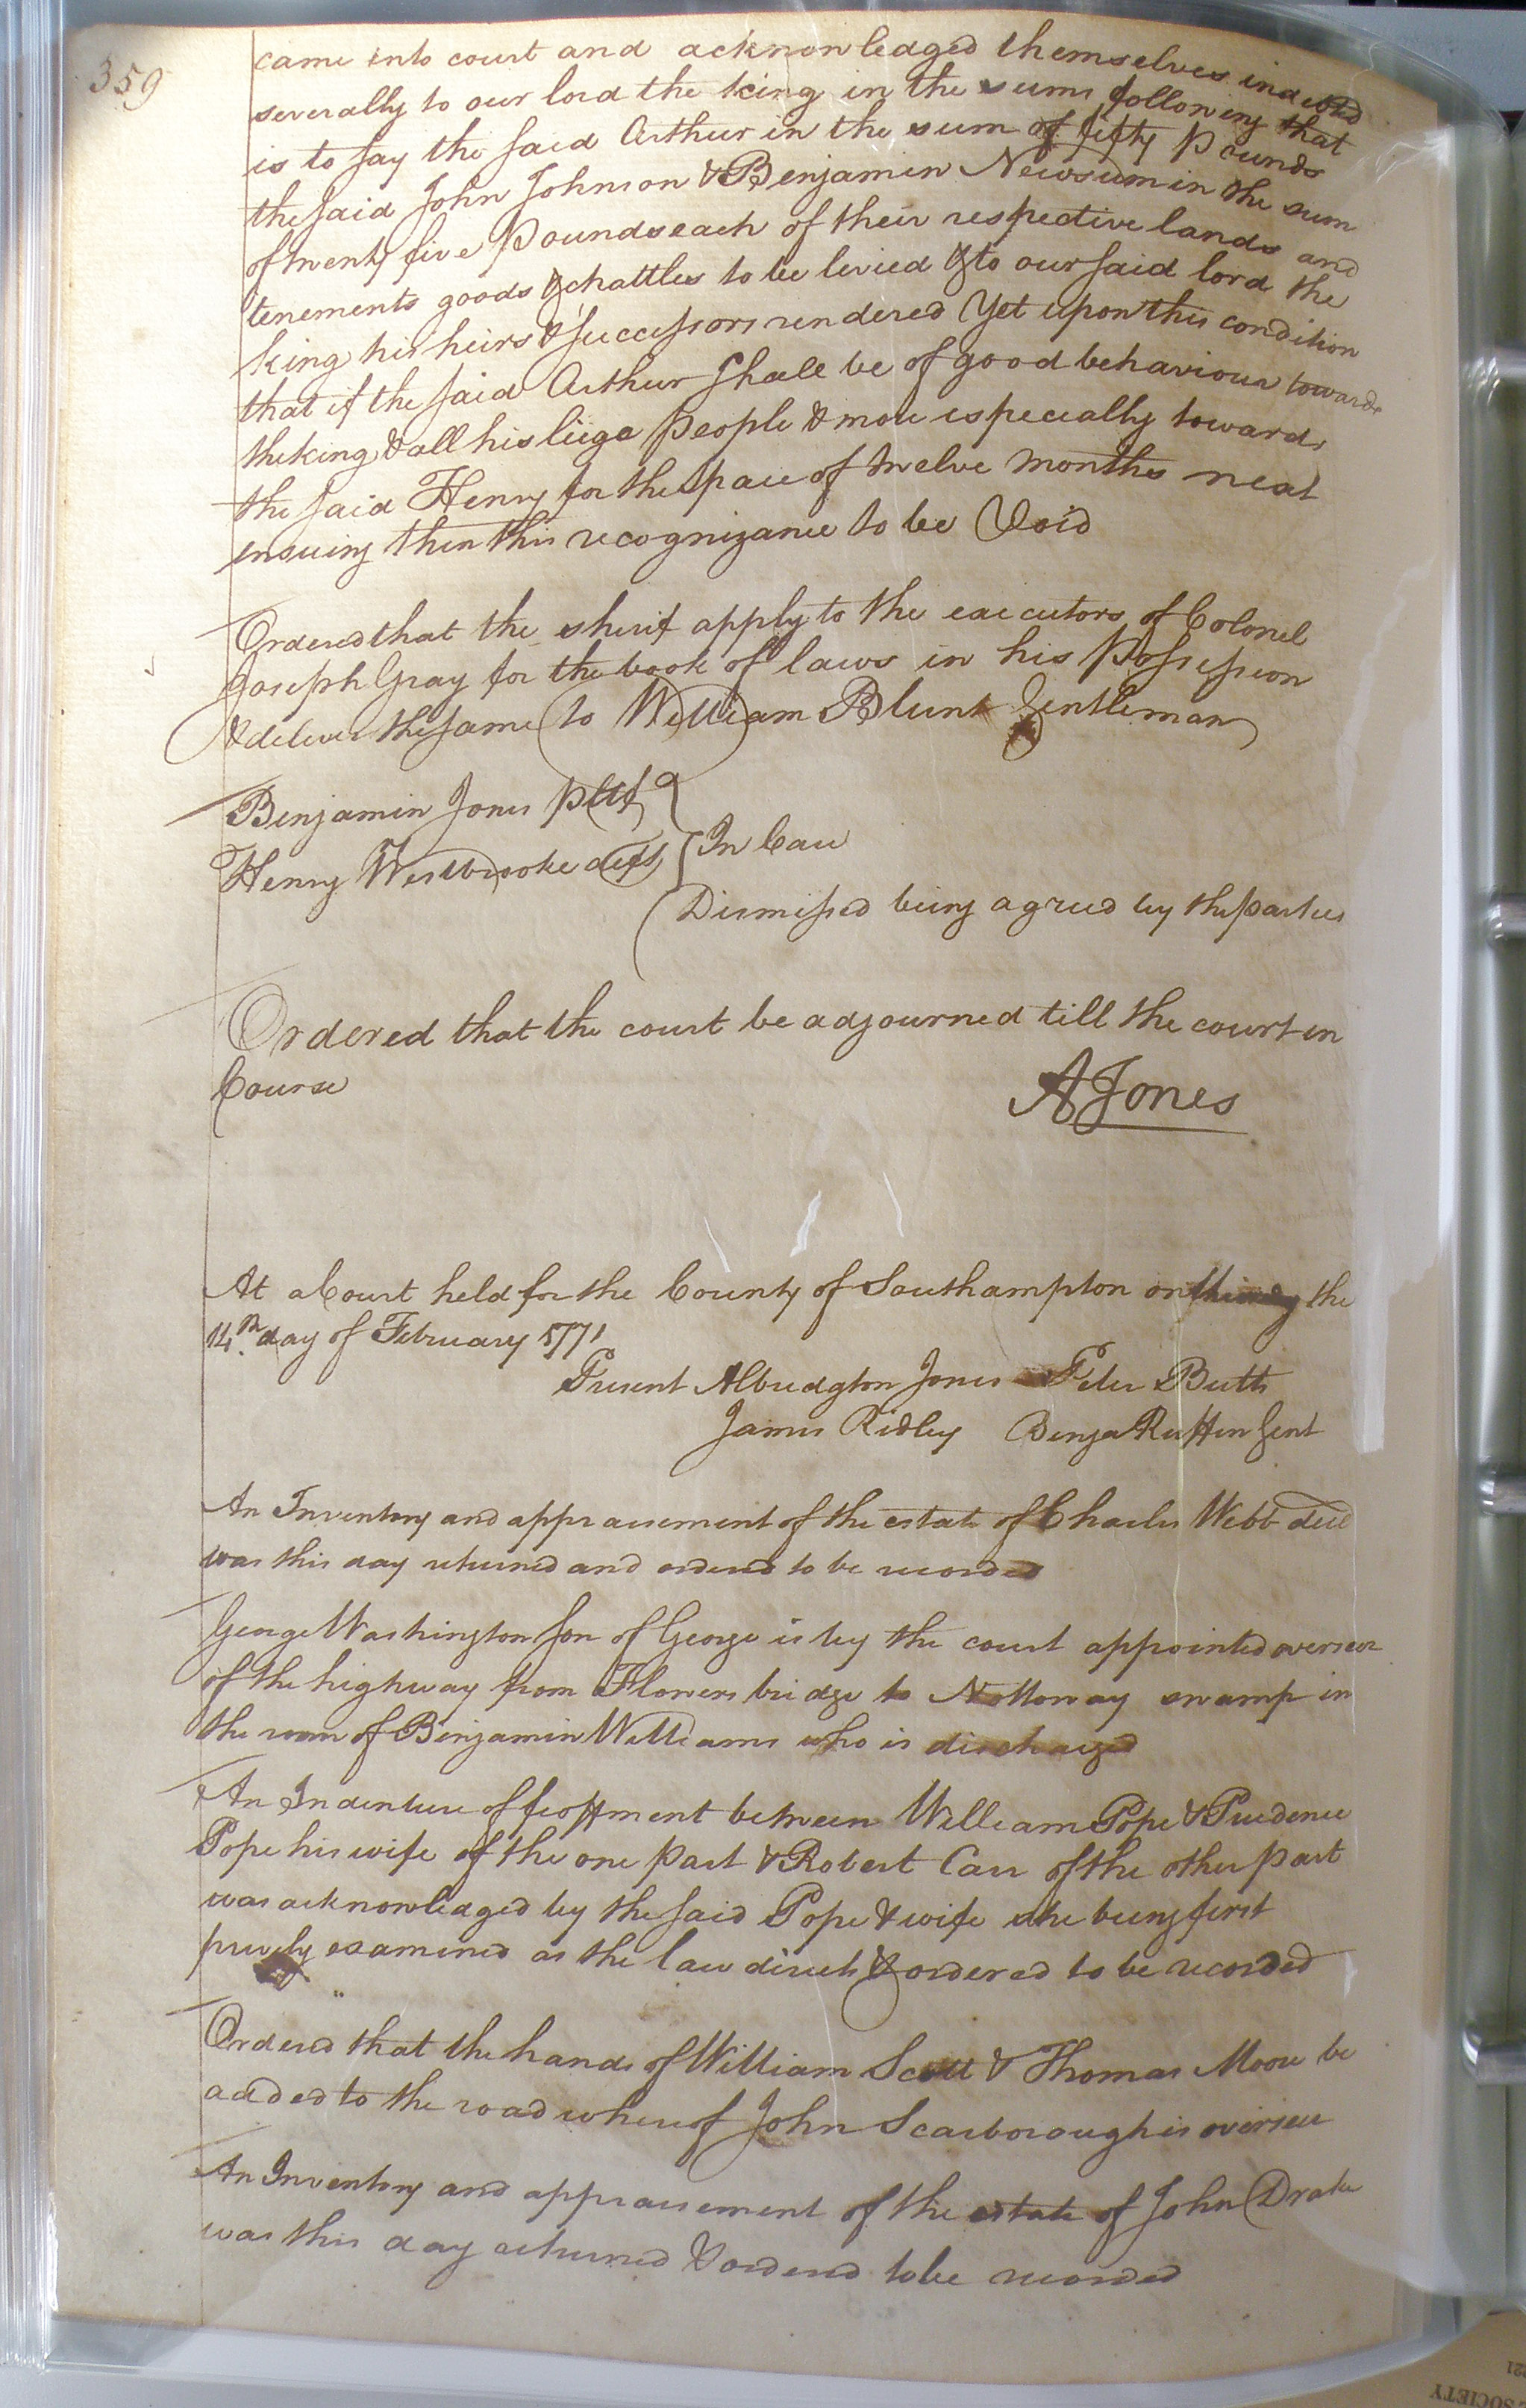 359
came into court and acknowledged themselves indebted
severally to our lord the king in the sums following that
is to say the said Arthur in the sum of fifty Pounds
the said John Johnson & Benjamin Newsum in the sum
of twenty five Pounds each of their respective lands and
tenements goods & chattles to be levied & to our said lord the
king his heirs & successors rendered Yet upon this condition
that if the said Arthur shall be of good behaviour towards
the king & all his liege People & more especially towards
the said Henry for the space of twelve months next
ensuing then this recognizance to be Void
Ordered that the sherif apply to the executors of Colonel
Joseph Gray for the book of laws in his Possession
& deliver the same to William Blunt Gentleman
Benjamin Jones pltf
In Case
Henry Westbrooke deft
Dismissed being agreed by the parties
Ordered that the court be adjourned till the court in
Course
AJones
At a Court held for the County of Southampton on the
14th day of February 1771
Present Albridgton Jones Peter Butts
James Ridley Benja Ruffin Gent
An Inventory and appraisement of the estate of Charles Webb decd
was this day returned and ordered to be recorded
George Washington son of George is by the court appointed overseer
of the highway from Flowers bridge to Nottoway swamp in
the room of Benjamin Williams who is discharged
An Indenture of feoffment between William Pope & Prudence
Pope his wife of the one part & Robert Carr of the other part
was acknowledged by the said Pope & wife she being first
privily examined as the law directs & ordered to be recorded
Ordered that the hands of William Scott & Thomas Moore be
added to the road whereof John Scarborough is overseer
An Inventory and appraisement of the estate of John Drake
was this day returned & ordered to be recorded
SOCIETY